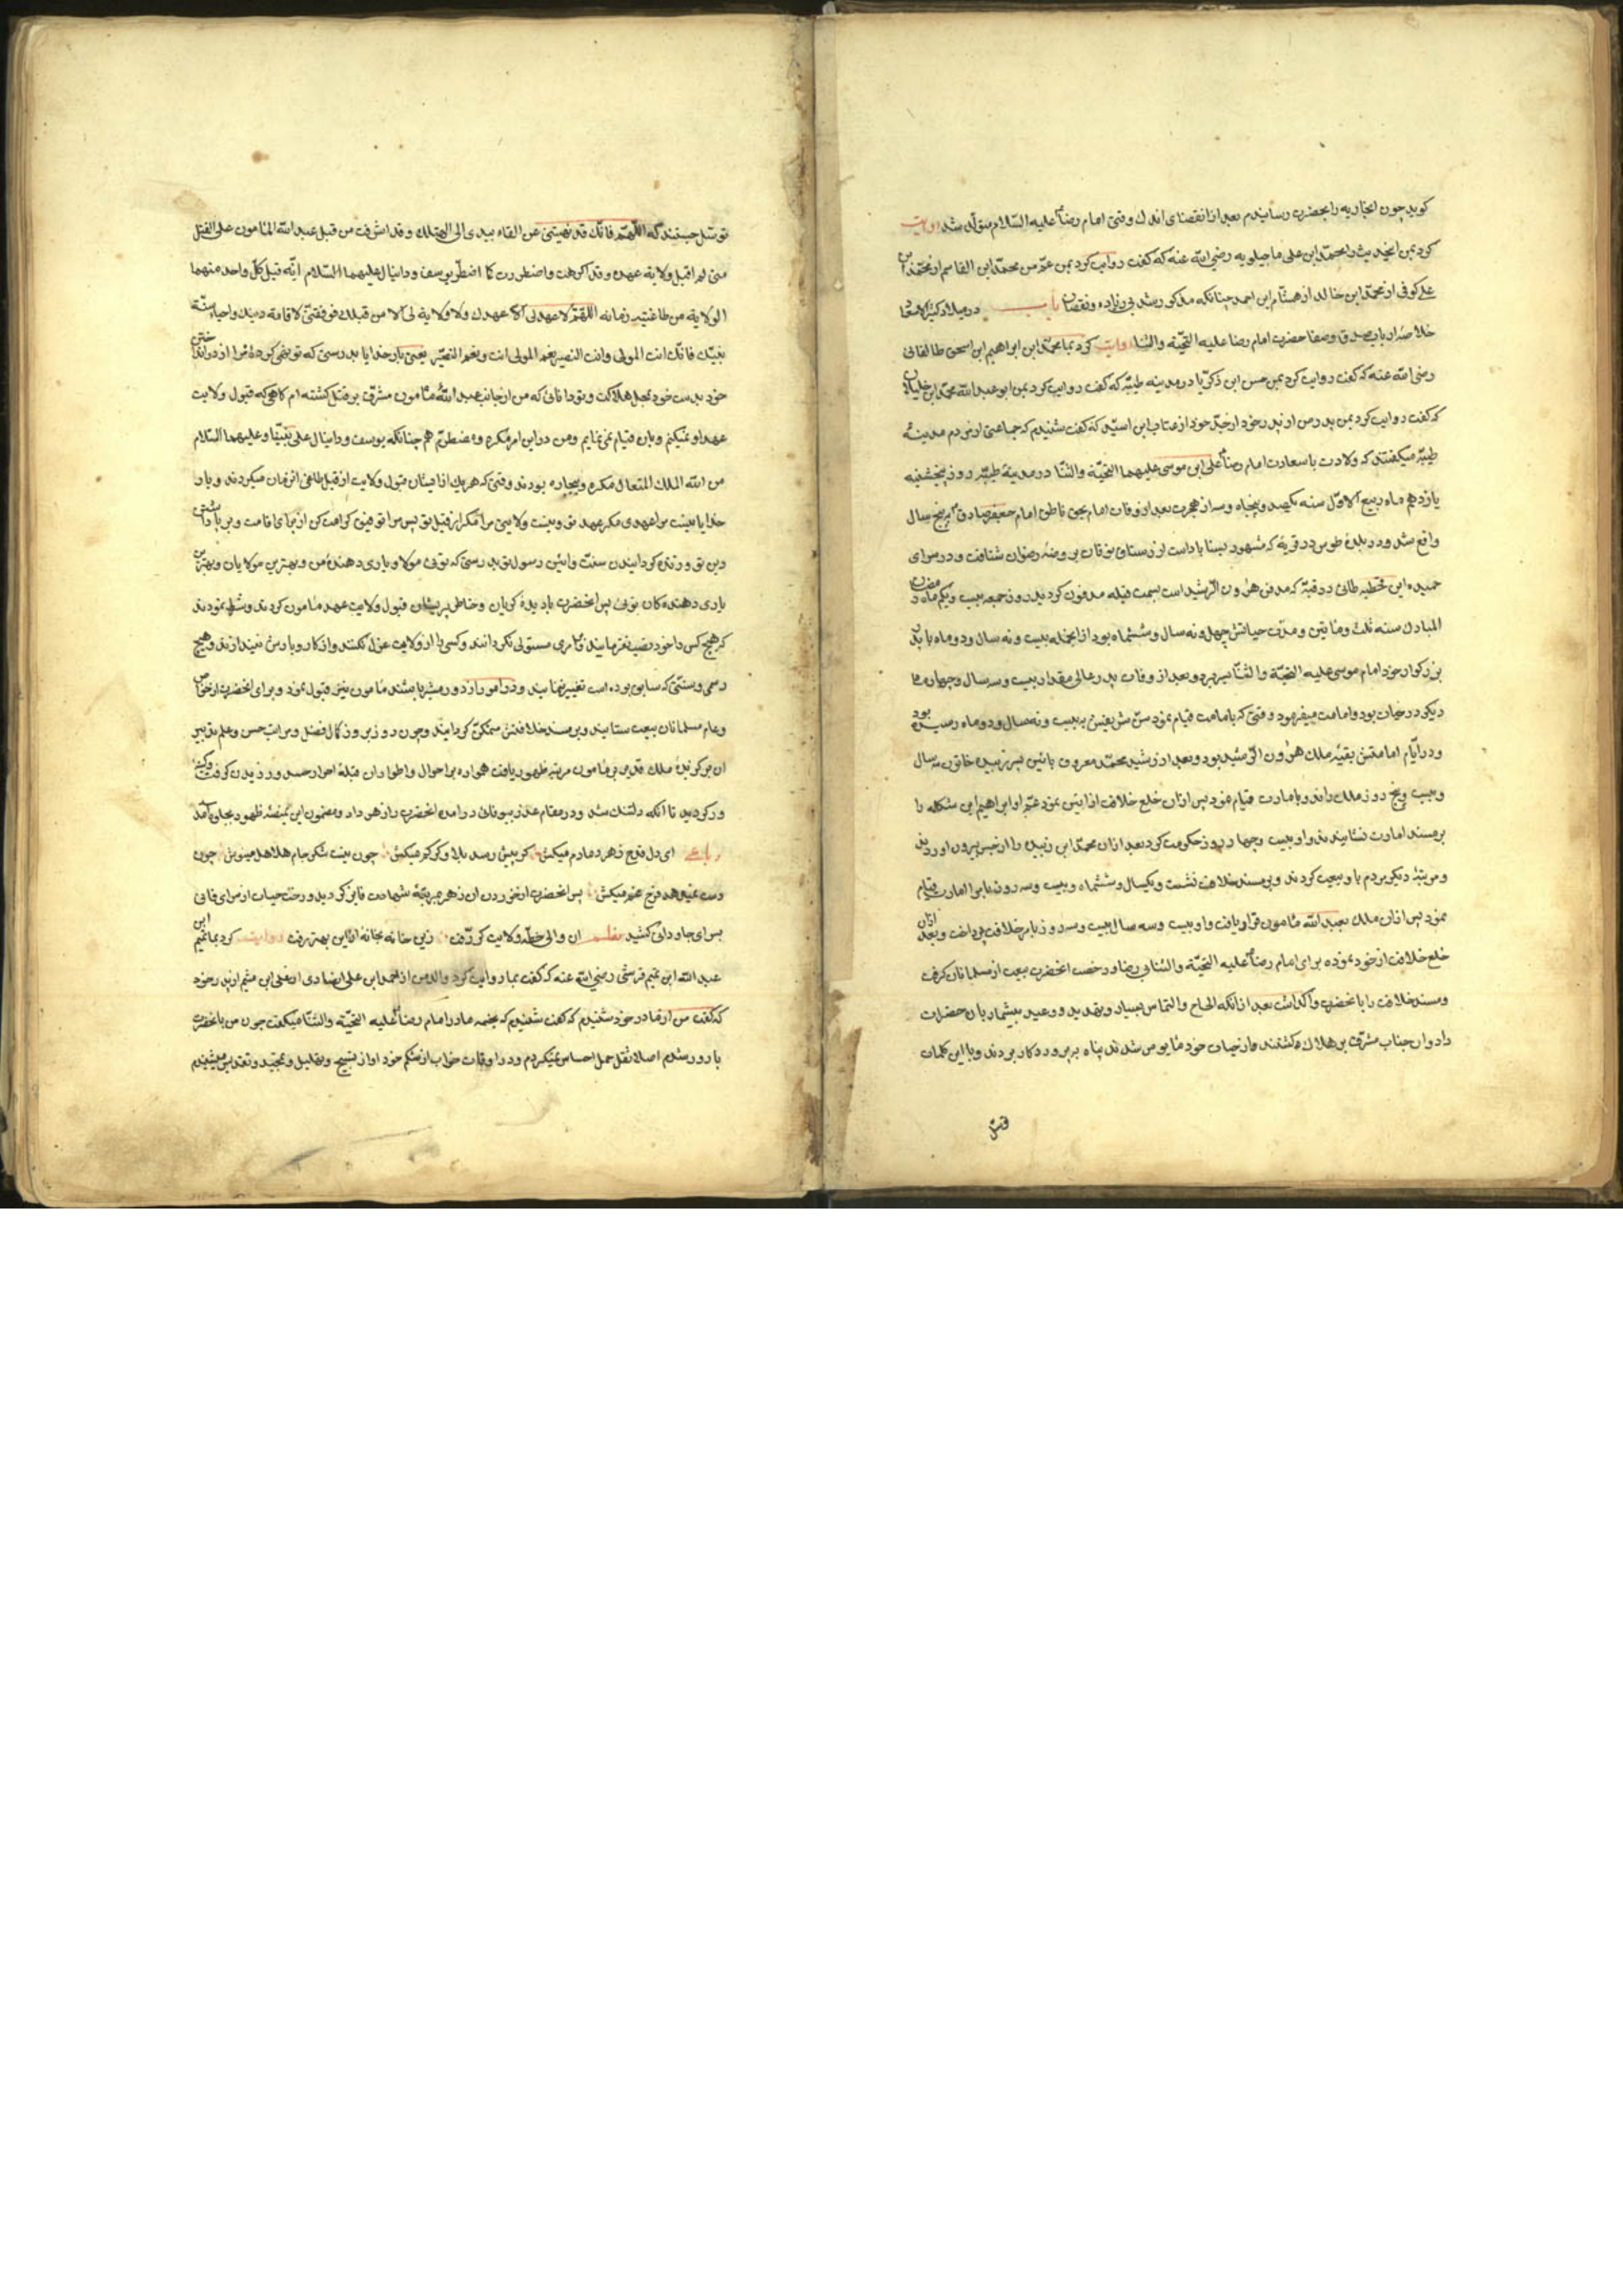 کوید چون انجاریه را بحضرت رسانیدم بعد از انقضای اندك وقتی امام رضا علیه السّلام متولّد شد روایت
کرد بمن اینحدیث را محمّد ابن علی ماجیلویه رضی الله عنه که گفت روایت کرد بمن عمّ من محمّد ابن القاسم از محمّد ابن
علی کوفی از محمّد ابن خالد از هشام ابن احمد چنانکه مذکور شد بی زیاده و نقصان باب در میلاد
خلاصهٔ ارباب صدق و صفا حضرت امام رضا علیه التحیّة والثنا روایت کرد بما محمّد ابن ابراهیم ابن اسحق طالقانی
رضی الله عنه که گفت روایت کرد بمن حسن ابن زکریّا در مدینه طیّبه که گفت روایت کرد بمن ابو عبد الله محمّد ابن خلیلان
که گفت روایت کرد بمن پدر من از پدر خود از جدّ خود از عتاب ابن اسید که گفت شنیدم که جماعتی از مردم مدینهٔ
طیّبه میکفتند که ولادت با سعادت امام رضا علی ابن موسی علیهما التحیّة والثنا در مدینهٔ طیّبه روز پنجشنبه
یازدهم ماه ربیع الاوّل سنه یکصد و پنجاه و سه از هجرت بعد از وفات امام بحق ناطق امام جعفر صادق به پنج سال
واقع شد و در بلدهٔ طوس در قریهٔ که مشهور بسناباد است از رستاق نوقان بروضهٔ رضوان شتافت و در سرای
حمید ابن قحطبه طائی در قبّهٔ که مدفن هرون الرّشید است بسمت قبله مدفون کردید روز جمعه بیست و یکم ماه رمضان
المبارك سنه ثلث و مأتین و مدّت حیاتش چهل و نه سال و ششماه بود از انجمله بیست و نه سال و دو ماه با پدر
بزرکوار خود امام موسی علیه التحیّة والثنا بسر برد و بعد از وفات پدر عالی مقدار بیست و سه سال و چهار ماه
دیکر در حیات بود و امامت میفرمود و وقتی که بامامت قیام نمود سنّ شریفش به بیست و نه سال و دو ماه رسیده بود
و در ایّام امامتش بقیّهٔ ملك هرون الرّشید بود و بعد از رشید محمّد معروف بامین پسر زبیده خاتون سه سال
و بیست و پنج روز ملك راند و بامارت قیام نمود پس از ان خلع خلافت از امین نمود عمّ او ابراهیم ابن شکله را
بر مسند امارت نشانیدند و او بیست و چهار روز حکومت کرد بعد از ان محمّد ابن زبیده را از حبس بیرون اوردند
و مرتبهٔ دیکر مردم باو بیعت کردند و بر مسند خلافت نشست و یکسال و ششماه و بیست و سه روز بامر امارت قیام
نمود پس از ان ملك بعبد الله مأمون قرار یافت و او بیست و سه سال بیست و سه روز بامر خلافت پرداخت و بعد ازان
خلع خلافت از خود نموده برای امام رضا علیه التحیّة والثنا بی رضا و رخصت انحضرت بیعت از مسلمانان کرفت
و مسند خلافت را بانحضرت واکذاشت بعد از انکه الحاح والتماس بسیار و تهدید و وعید بیشمار بان حضرت
داد و ان جناب مشرّف بر هلاك کشتند و از حیات خود مأیوس شدند پناه بپروردکار بردند و با این کلمات
توسّل جستند که اللّهمّ فانّك قد نهیتنی عن القاء بیدی الی التهلکه و قد اشرفت من قبل عبد الله المأمون علی القتل
متی لم اقبل ولایة عهده و قد اکرهت و اضطررت کما اضطرّ یوسف و دانیال علیهما السّلام اذ قبل کلّ واحد منهما
الولایة من طاغیة زمانه اللّهمّ لا عهد لی الّا عهدك ولا ولایة لی الّا من قبلك فوفّقنی لاقامة دینك واحیاء سنّة
نبیّك فانّك انت المولی وانت النصیر ونعم المولی انت ونعم النصیر یعنی بار خدایا بدرستی که تو نهی کردهٔ مرا از انداختن
خود بدست خود بمحل هلاکت و تو دانائی که من از جانب عبد الله مأمون مشرّف بر قتل کشته ام کاهی که قبول ولایت
عهد او نمیکنم و بان قیام نمی نمایم و من در این امر مکره و مضطرّم هم چنانکه یوسف و دانیال علی نبیّنا و علیهما السّلام
من الله الملك المتعال مکره و بیچاره بودند وقتی که هریك از ایشان قبول ولایت از قبل طاغی انزمان میکردند و بار
خدایا نیست مرا عهدی مکر عهد تو و نیست ولایتی مرا مکر از قبل تو پس مرا توفیق کرامت کن از برای اقامت و برپا داشتن
دین تو و زنده کردانیدن سنّت و ائین رسول تو بدرستی که توئی مولا و یاری دهندهٔ من و بهترین مولایان و بهترین
یاری دهنده کان توئی پس انحضرت با دیدهٔ کریان و خاطر پریشان قبول ولایت عهد مأمون کردند و شرط نمودند
که هیچ کس را خود نصب نفرمایند و کسی را از ولایت عزل نکنند و هیچ
رسمی و سنّتی که سابق بوده است تغییر ننمایند و در امور از دور مشیر باشند مأمون نیز قبول نمود و برای انحضرت از خواصّ
و عوام مسلمانان بیعت ستانید و بر مسند خلافتش متمکّن کردانید و چون روز بروز کمال فضل و مراتب حسن و علم تدبیر
ان بر کزیدهٔ ملك قدیر بر مأمون مرتبهٔ ظهور یافت همواره بر احوال و اطوار ان قبلهٔ احرار حسد ورزیدن کرفت
ورکردید تا آنکه دلتنك شد و در مقام عذر و بیوفائی درامده انحضرت را زهر داد و مضمون این بمنصّهٔ ظهور بجلوه آمد
رباعی ای دل قدح زهر دمادم میکش کر پیش رسد بلا و کر کم میکش چون نیست شکر جام هلاهل مینوش چون
دست نمیدهد فرح غم میکش پس انحضرت از خوردن ان زهر بمرتبهٔ شهادت فایز کردید و رخت حیات از سرای فانی
بسرای جاودانی کشید نظم ان والی خطّهٔ ولایت کردّفت زین خانه بخانهٔ ازاین بهتر رفت روایت کرد بما تمیم ابن
عبد الله ابن تمیم قرشی رضی الله عنه که گفت بما روایت کرد والد من از احمد ابن علی انصاری از علی ابن میثم از پدر خود
که گفت من از مادر خود شنیدم که گفت شنیدم که نجمه مادر امام رضا علیه التحیّة والثنا میکفت چون من بانحضرت
بارور شدم اصلا ثقل حمل احساس نمیکردم و در اوقات خواب از شکم خود اواز تسبیح و تهلیل و تمجید و تقدیس میشنیدم